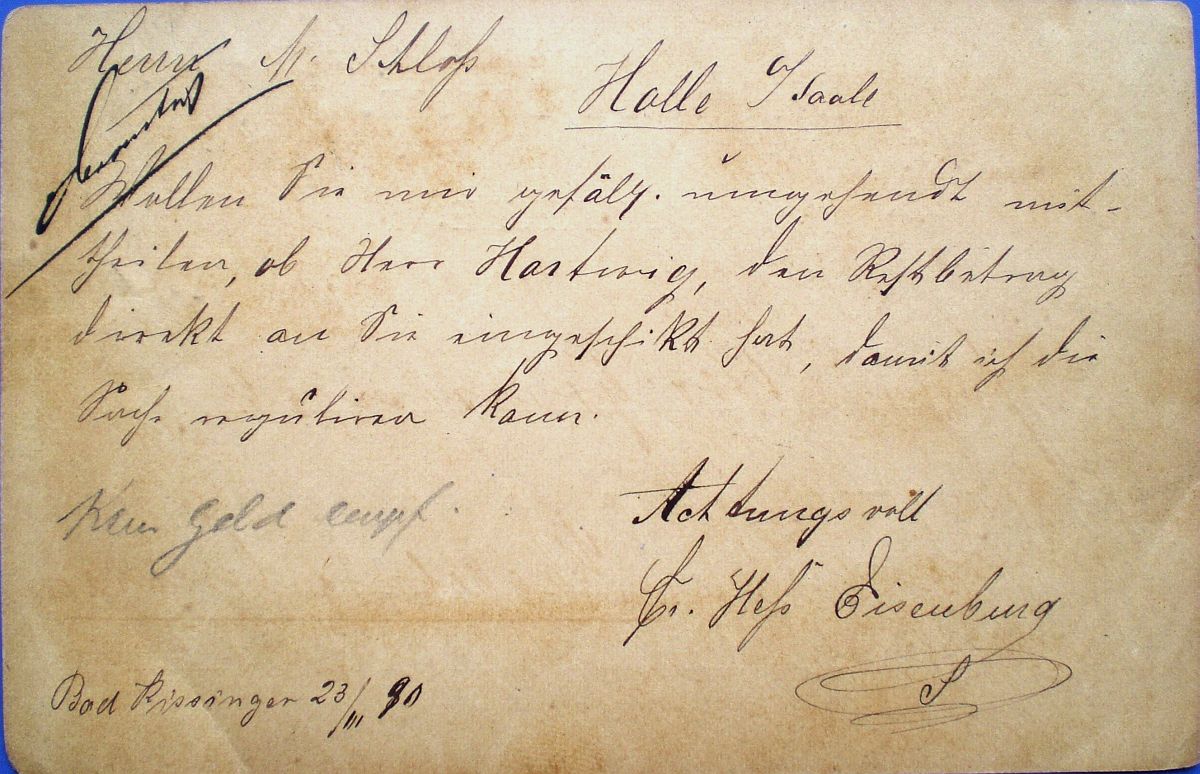 Herrn M. Schloß
Halle /Saale
Wollen Sie mir gefälg. umgehendt mit-
theilen, ob Herr Hartwig, den Restbetrag
direkt an Sie eingeschikt hat, damit ich die
Sache reguliren kann.
Kein Geld empf.
Achtungsvoll
Gr. Heß Eisenburg
Bad Kissingen 23/III 90